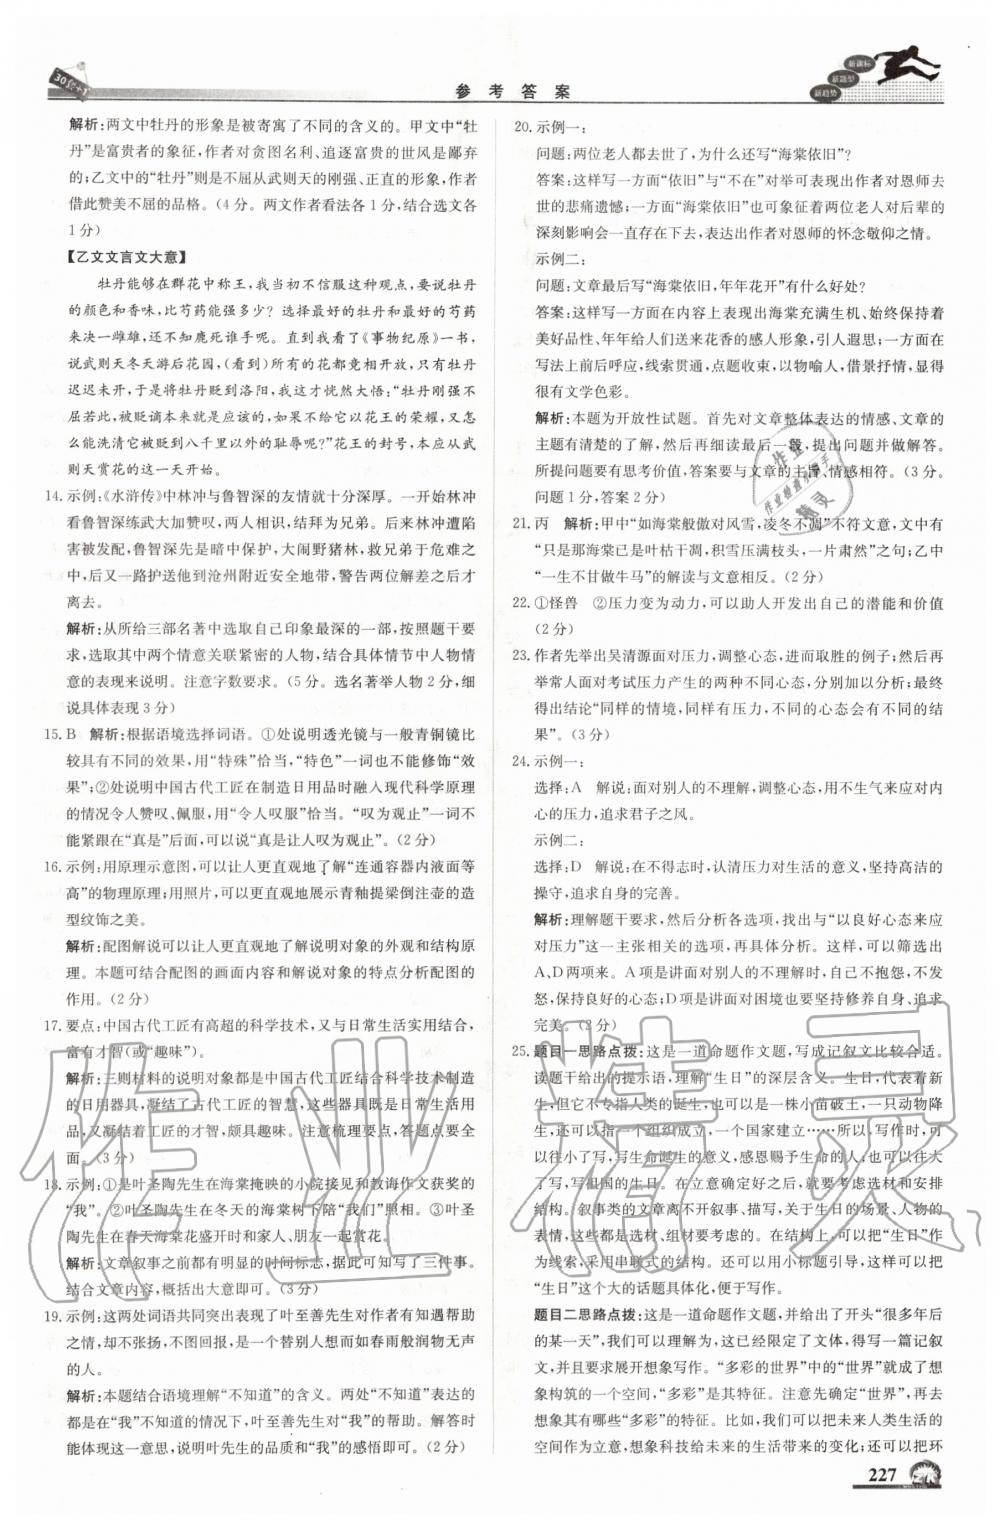 30套+1
参考答案
新课标
新题型
新趋势
解析:两文中牡丹的形象是被寄寓了不同的含义的。甲文中“牡
丹”是富贵者的象征,作者对贪图名利、追逐富贵的世风是鄙弃
的;乙文中的“牡丹”则是不屈从武则天的刚强、正直的形象,作者
借此赞美不屈的品格。(4分。两文作者看法各1分,结合选文各
1分)
【乙文文言文大意】
牡丹能够在群花中称王,我当初不信服这种观点,要说牡丹
的颜色和香味,比芍药能强多少?选择最好的牡丹和最好的芍药
来决一雌雄,还不知鹿死谁手呢。直到我看了《事物纪原》一书,
说武则天冬天游后花园,(看到)所有的花都竞相开放,只有牡丹
迟迟未开,于是将牡丹贬到洛阳,我这才恍然大悟:“牡丹刚强不
屈若此,被贬谪本来就是应该的,如果不给它以花王的荣耀,又怎
么能洗清它被贬到八千里以外的耻辱呢?”花王的封号,本应从武
则天赏花的这一天开始。
14. 示例:《水浒传》中林冲与鲁智深的友情就十分深厚。一开始林冲
看鲁智深练武大加赞叹,两人相识,结拜为兄弟。后来林冲遭陷
害被发配,鲁智深先是暗中保护,大闹野猪林,救兄弟于危难之
中,后又一路护送他到沧州附近安全地带,警告两位解差之后才
离去。
解析:从所给三部名著中选取自己印象最深的一部,按照题干要
求,选取其中两个情意关联紧密的人物,结合具体情节中人物情
意的表现来说明。注意字数要求。(5分。选名著举人物2分,细
说具体表现3分)
15. B 解析:根据语境选择词语。①处说明透光镜与一般青铜镜比
较具有不同的效果,用“特殊”恰当,“特色”一词也不能修饰“效
果”;②处说明中国古代工匠在制造日用品时融入现代科学原理
的情况令人赞叹、佩服,用“令人叹服”恰当。“叹为观止”一词不
能紧跟在“真是”后面,可以说“真是让人叹为观止”。(2分)
16. 示例:用原理示意图,可以让人更直观地了解“连通容器内液面等
高”的物理原理;用照片,可以更直观地展示青釉提梁倒注壶的造
型纹饰之美。
解析:配图解说可以让人更直观地了解说明对象的外观和结构原
理。本题可结合配图的画面内容和解说对象的特点分析配图的
作用。(2分)
17. 要点:中国古代工匠有高超的科学技术,又与日常生活实用结合,
富有才智(或“趣味”)。
解析:三则材料的说明对象都是中国古代工匠结合科学技术制造
的日用器具,凝结了古代工匠的智慧,这些器具都用于日常生活
中,又凝结着工匠的才智,颇具趣味。注意梳理要点,答题点要全
面。(3分)
18. 示例:①是叶圣陶先生在海棠掩映的小院接见和教诲作文获奖的
“我”。②叶圣陶先生在冬天的海棠树下陪“我们”照相。③叶圣
陶先生在春天海棠花盛开时和家人、朋友一起赏花。
解析:文章叙事之前都有明显的时间标志,据此可知写了三件事。
结合文章内容,概括出大意即可。(3分)
19. 示例:这两处词语共同突出表现了叶至善先生对作者有知遇帮助
之情,却不张扬,不图回报,是一个替别人想而如春雨般润物无声
的人。
解析:本题结合语境理解“不知道”的含义。两处“不知道”表达的
都是在“我”不知道的情况下,叶至善先生对“我”的帮助。解答时
能体现这一意思,说明叶先生的品质和“我”的感悟即可。(2分)
20. 示例一:
问题:两位老人都去世了,为什么还写“海棠依旧”?
答案:这样写一方面“依旧”与“不在”对举可表现出作者对恩师去
世的悲痛遗憾;一方面“海棠依旧”也可象征着两位老人对后辈的
深刻影响会一直存在下去,表达出作者对恩师的怀念敬仰之情。
示例二:
问题:文章最后写“海棠依旧,年年花开”有什么好处?
答案:这样写一方面在内容上表现出海棠充满生机、始终保持着
美好品性、年年给人们送来花香的感人形象,引人遐思;一方面在
写法上前后呼应,线索贯通,点题收束,以物喻人,借景抒情,显得
很有文学色彩。
解析:本题为开放性试题。首先对文章整体表达的情感、文章的
主题有清楚的了解,然后再细读最后一段,提出问题并做解答。
所提问题要有思考价值,答案要与文章的主旨、情感相符。(3分。
问题1分,答案2分)
21. 丙 解析:甲中“如海棠般傲对风雪,凌冬不凋”不符文意,文中有
“只是那海棠已是叶枯干凋,积雪压满枝头,一片肃然”之句;乙中
“一生不甘做牛马”的解读与文意相反。(2分)
22. ①怪兽 ②压力变为动力,可以助人开发出自己的潜能和价值
(2分)
23. 作者先举出吴清源面对压力,调整心态,进而取胜的例子;然后再
举常人面对考试压力产生的两种不同心态,加以对比论证;最终
得出结论“同样的情境,同样有压力,不同的心态会有不同的结
果”。(3分)
24. 示例一:
选择:A 解说:面对别人的不理解,调整心态,用不生气来应对内
心的压力,追求君子之风。
示例二:
选择:D 解说:在不得志时,认清压力对生活的意义,坚持高洁的
操守,追求自身的完善。
解析:理解题干要求,然后分析各选项,找出与“以良好心态来应
对压力”这一主张相关的选项,再具体分析。这样,可以筛选出
A、D两项来。A项是讲面对别人的不理解时,自己不抱怨、不发
怒,保持良好的心态;D项是讲面对困境也要坚持修养自身、追求
完美。(2分)
25. 题目一思路点拨:这是一道命题作文题,写成记叙文比较合适。
读题干给出的提示语,理解“生日”的深层含义。生日,代表着新
生,但它不专指人类的诞生,也可以是一株小苗破土,一只动物降
生,还可以指一个组织成立,一个国家建立……所以,写作时,可
以写人的生日,写生命诞生的美好,感恩赐予生命的人,也可以
写,写祖国的生日。在立意确定好之后,就要考虑选材和安排
结构。叙事类的文章离不开叙事、描写,关于生日的场景、人物的
表情,这些都是选材、组材要考虑的。在结构上,可以把“生日”作
为线索,采用串联式的结构。还可以采用小标题引导,可以把
“生日”这个大的话题具体化,便于写作。
题目二思路点拨:这是一道命题作文题,并给出了开头“很多年后
的某一天”,我们可以理解为,这已经限定了文体,得写一篇记叙
文,并且要求展开想象写作。“多彩的世界”中的“世界”就成了想象
文构筑的一个空间,“多彩”是其特征。注意先确定“世界”,再去
想象其有哪些“多彩”的特征。比如,我们可以把未来人类生活的
空间作为立意,想象科技给未来的生活带来的变化;还可以把环
作业
作业检查小助手
精灵
作业精灵
227